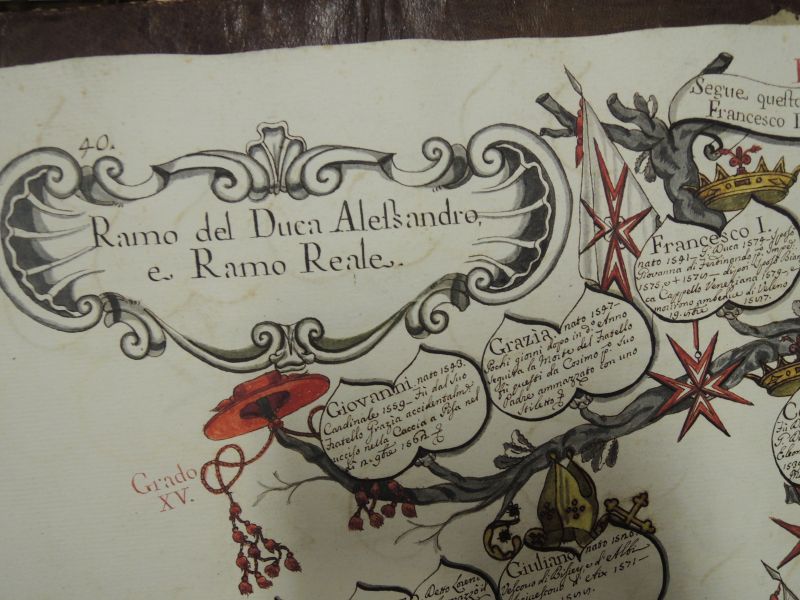 40.
Ramo del Duca Alessandro,
e Ramo Reale.
Segue questo
Francesco I
Francesco I.
nato 1541 G. Duca 1574
Giovanna di Ferdinando
1578 dipoi sposò Bian
ca Cappello Veneziana 1579 e
morirno ambedue di Veleno
1587.
Grazia. nato 1547
Pochi giorni dopo in d.º Anno
seguita la Morte del Fratello
fù questi da Cosimo pº Suo
Padre ammazzato con uno
Stiletto
Giovanni nato 1543.
Cardinale 1559 Fù dal Suo
Fratello Grazia accidentalm.
ucciso nella Caccia a Pisa nel
dì 1562
Grado
XV.
Giuliano nato 1520
Vescovo di e d'Albi
Arcivescovo d'Aix 1571
Detto Loren